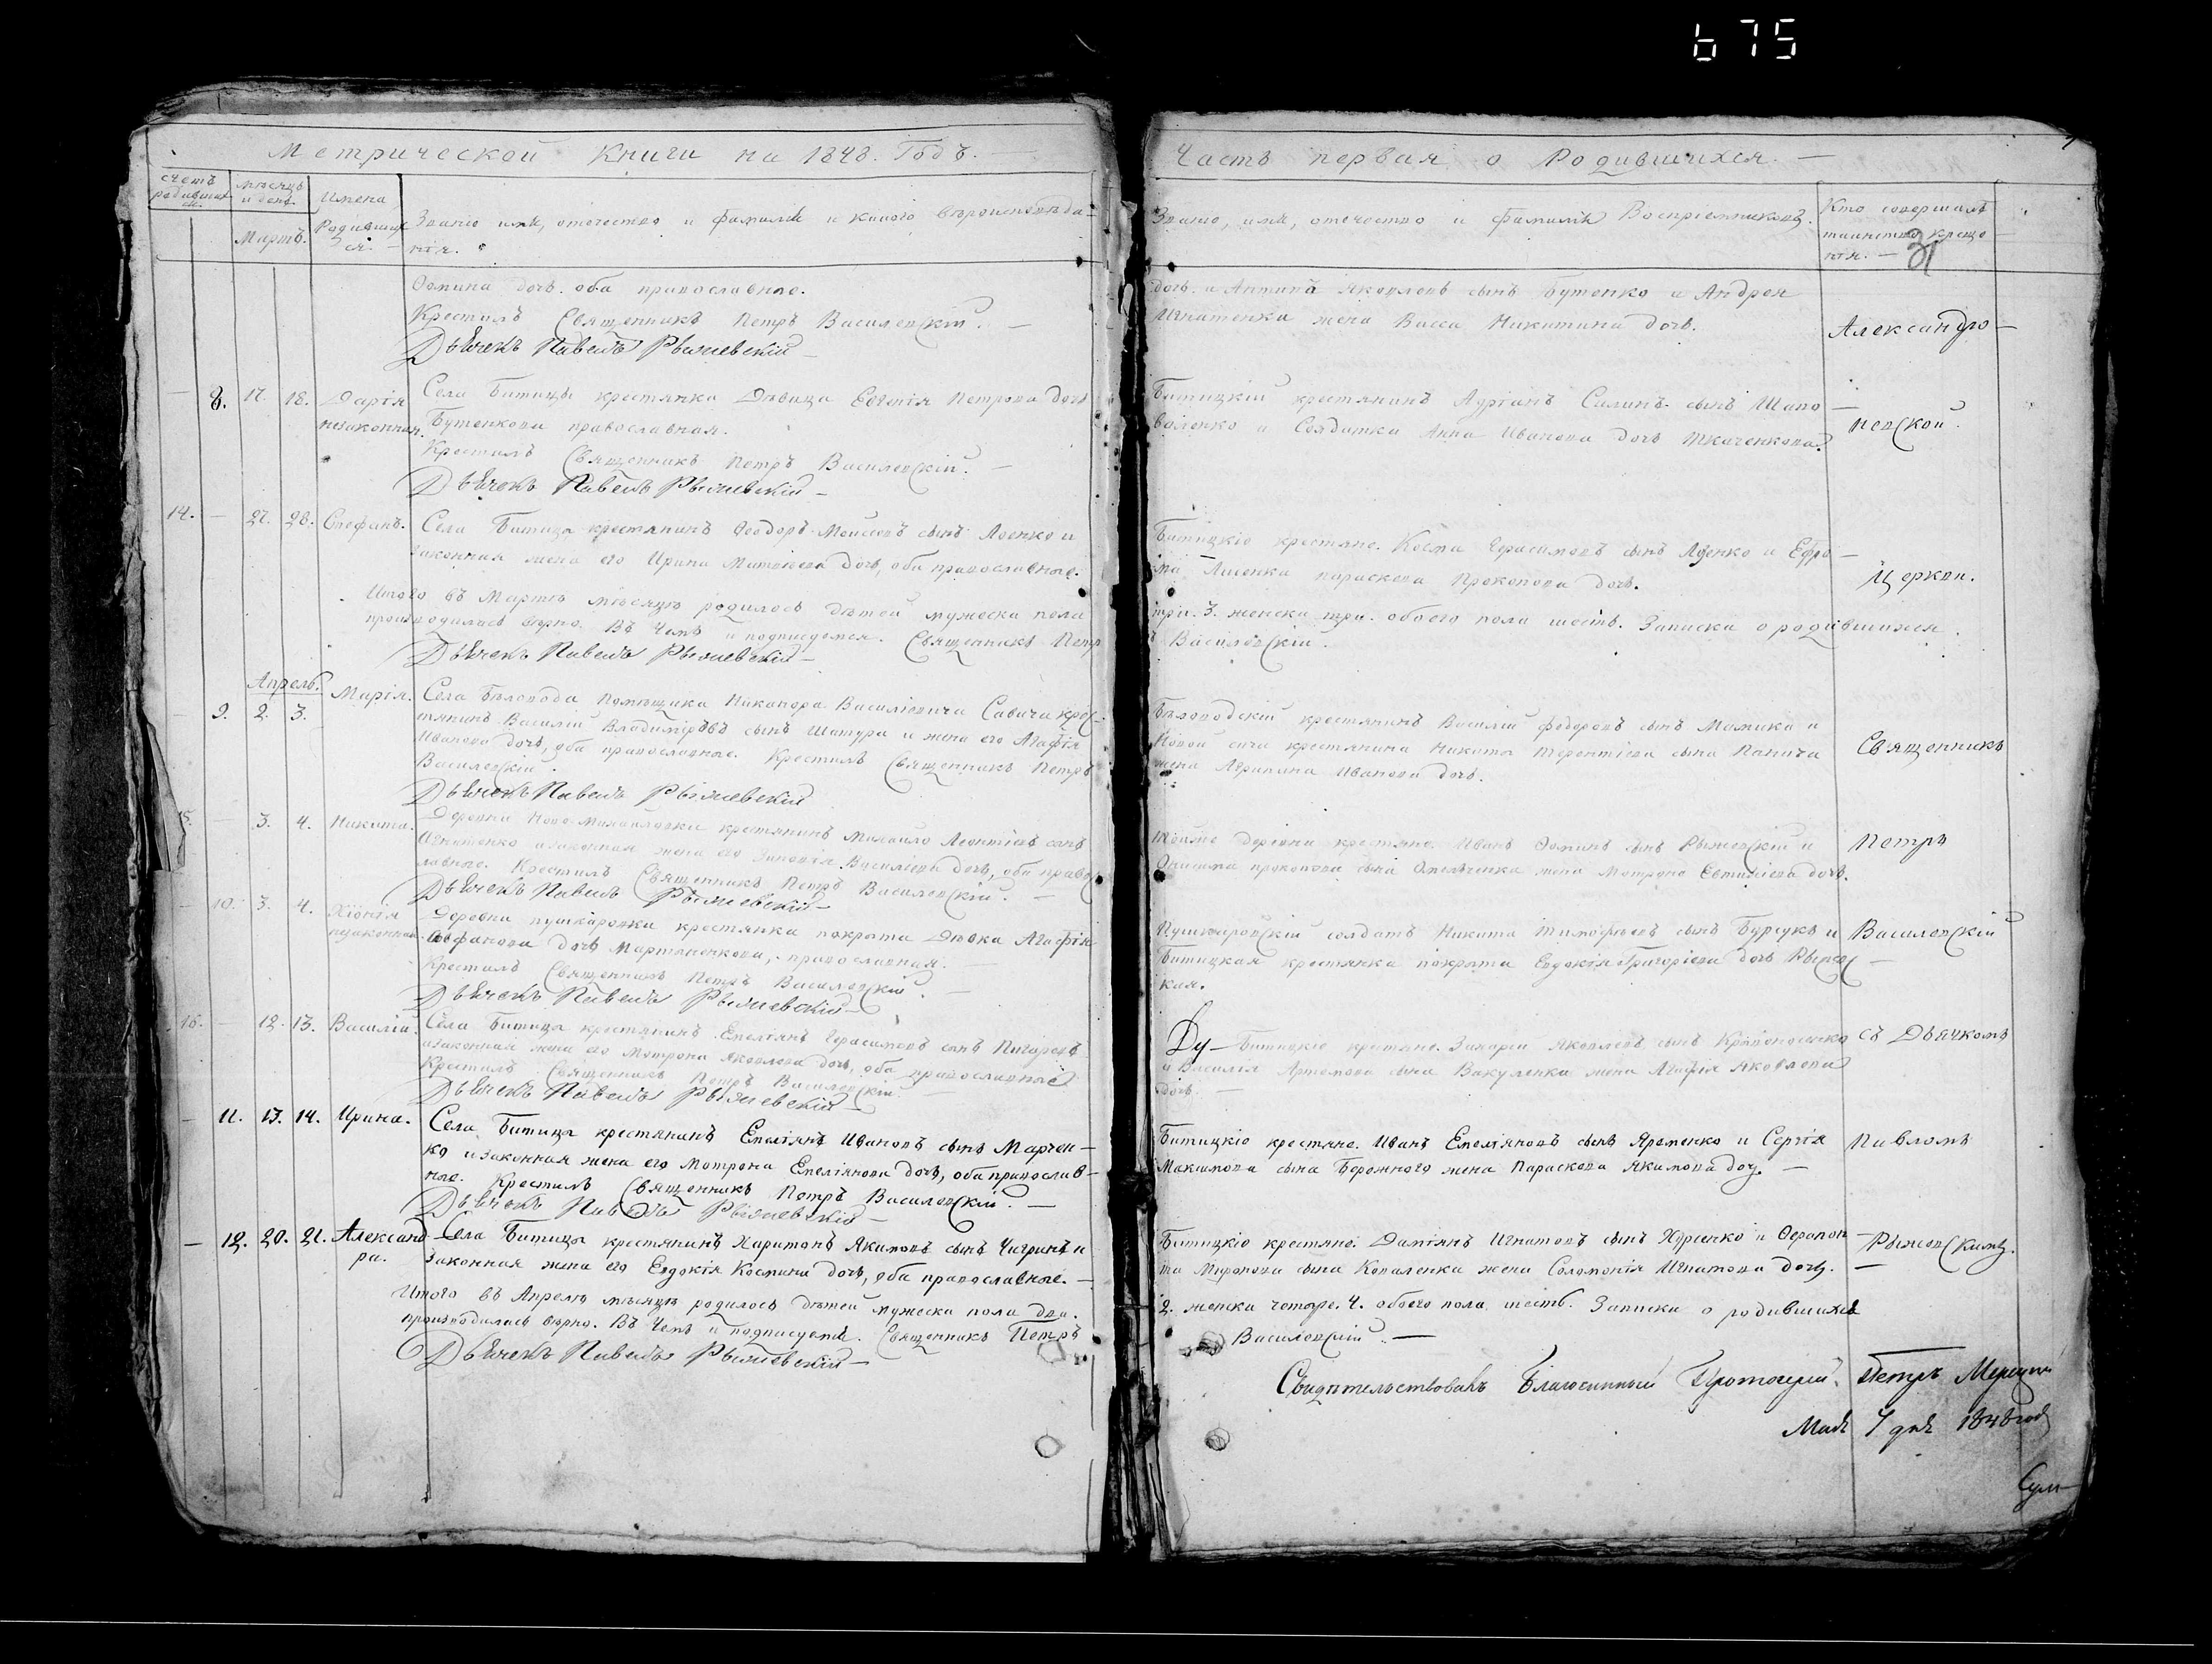 675
Метрической Книги на 1848. Годъ. —
счетъ родившихся.
мѣсяцъ и день.
Мартъ.
Имена Родившихся. —
Званіе имя, отечество и фамилія и какого вѣроисповѣда-
нія.
Ѳомина дочь. оба православные.
Крестилъ Священникъ Петръ Василевскій. —
Дьячекъ Павелъ Рыжевскій —
— 8. 17. 18. Дарія
незаконная.
Села Битицы крестьянка Дѣвица Евгенія Петрова дочь
Бутенкова православная.
Крестилъ Священникъ Петръ Василевскій. —
Дьячекъ Павелъ Рыжевскій —
14. — 27. 28. Стефанъ.
Села Битица крестьянинъ Ѳеодоръ Моисеевъ сынъ и
законная жена его Ирина дочь, оба православные.
Итого въ Мартѣ мѣсяцѣ родилось дѣтей мужеска пола
производилась вѣрно. Въ чемъ и подписуемся. Священникъ Петр
Дьячекъ Павелъ Рыжевскій —
Апрель.
9. 2. 3. Марія.
Села Бѣловода Помѣщика Никонора Василіевича Савича крес-
тянинъ Василій Владиміровъ сынъ Шатура и жена его Агафія
Иванова дочь, оба православные. Крестилъ Священникъ Петръ
Василевскій.
Дьячекъ Павелъ Рыжевскій
15. — 3. 4. Никита.
Деревни Ново-Михайловки крестянинъ Михайло Леонтіевъ сынъ
Игнатенко и законная жена его Зиновія Василіева дочь, оба право-
лавные. Крестилъ Священникъ Петръ Василевскій. —
Дьячекъ Павелъ Рыжевскій —
— 10. 3. 4. Хіонія
незаконная.
Деревни пушкаровки крестянка покрыта Дѣвка Агафія
дочь Мартыненкова, православная. —
Крестилъ Священникъ Петръ Василевскій. —
Дьячекъ Павелъ Рыжевскій —
16. — 12. 13. Василій.
Села Битица крестянинъ Емеліянъ Герасимовъ сынъ
и законная жена его Мотрона Яковлева дочь, оба православные
Крестилъ Священникъ Петръ Василевскій. —
Дьячекъ Павелъ Рыжевскій —
— 11. 13. 14. Ирина.
Села Битица крестянинъ Емеліянъ Ивановъ сынъ Марчен-
ко и законная жена его Мотрона Емеліянова дочь, оба православ-
ные. Крестилъ Священникъ Петръ Василевскій. —
Дьячекъ Павелъ Рыжевскій —
— 12. 20. 21. Александ
ра.
Села Битица крестянинъ Харитонъ Якимовъ сынъ Чигринъ и
законная жена его Евдокія Космина дочь, оба православные. —
Итого въ Апрелѣ мѣсяцѣ родилось дѣтей мужеска пола два.
производилась вѣрно. Въ чемъ и подписуемся. Священникъ Петръ
Дьячекъ Павелъ Рыжевскій —
Часть первая о Родившихся. —
Званіе, имя, отечество и фамилія Воспріемниковъ.
Кто совершалъ
таинство креще-
нія. —
31
дочь. и Яковлевъ сынъ Бутенко и Андрея
Игнатенка жена Васса Никитина дочь.
Александро-
Битицкій крестьянинъ Адріанъ сынъ Шапо-
воленко и Солдатка Анна Иванова дочь Ткаченкова.
невской.
Битицкіе крестяне. Косма Герасимовъ сынъ и
параскева Прокопова дочь.
Церкви.
три. 3. женска три. обоего пола шесть. Записка о родившихся.
Василевскій.
Бѣловодскій крестянинъ Василій Федоровъ сынъ и
крестянина Никита Терентіева сына
жена Агрипина Иванова дочь.
Священникъ
деревни крестяне. Иванъ Ѳоминъ сынъ Рыжевскій и
прокопова сына жена Мотрона Евтиміева дочь.
Петръ
Пушкаровскій солдатъ Никита Тимофѣевъ сынъ Бурсукъ и
Битицкая крестянка покрыта Евдокія Григоріева дочь
кая.
Василевскій
Битицкіе крестяне. Захарій Яковлевъ сынъ
и Василія Артемова сына Вакуленка жена Агафія Яковлева
дочь. —
съ Дьячкомъ
Битицкіе крестяне. Иванъ Емеліяновъ сынъ Яременко и Сергія
Максимова сына Бережного жена Параскева Якимова доч. —
Павломъ
Битицкіе крестяне. Даміянъ Игнатовъ сынъ и Ѳерапон-
та Миронова сына Коваленка жена Соломонія Игнатова дочь. —
Рыжевскимъ.
2. женска четыре. 4. обоего пола шесть. Записка о родившихся
Василевскій. —
Свидѣтельствовалъ Благочинный Протоіерей Петръ
Маія 4 дня 1848 года
Сум-